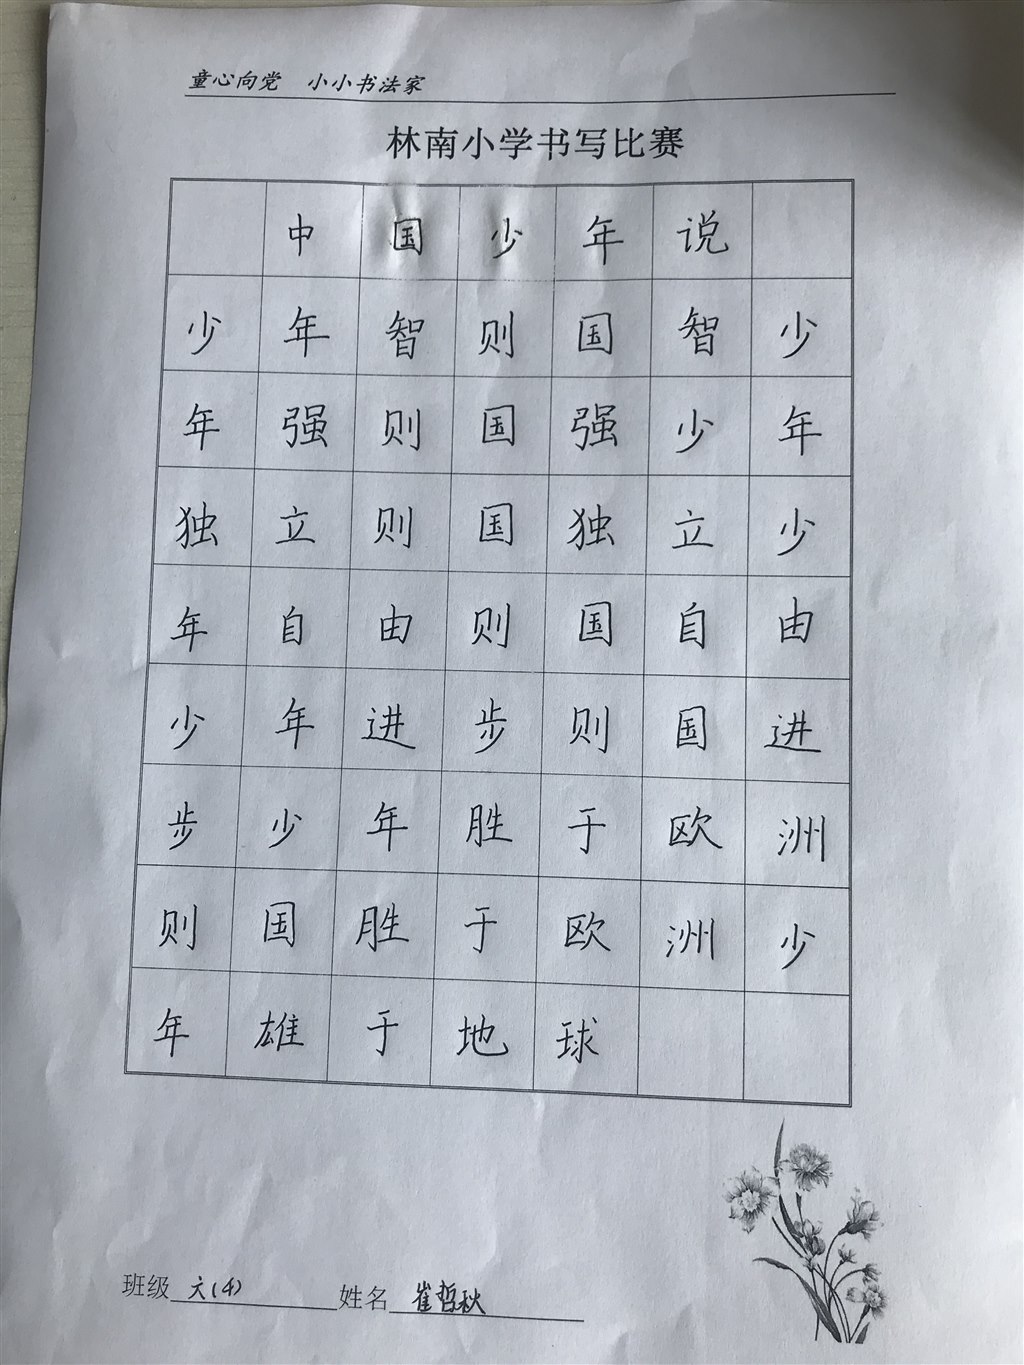 童心向党 小小书法家
林南小学书写比赛
中国少年说
少年智则国智少
年强则国强少年
独立则国独立少
年自由则国自由
少年进步则国进
步少年胜于欧洲
则国胜于欧洲少
年雄于地球
班级 六(4) 姓名 崔哲秋